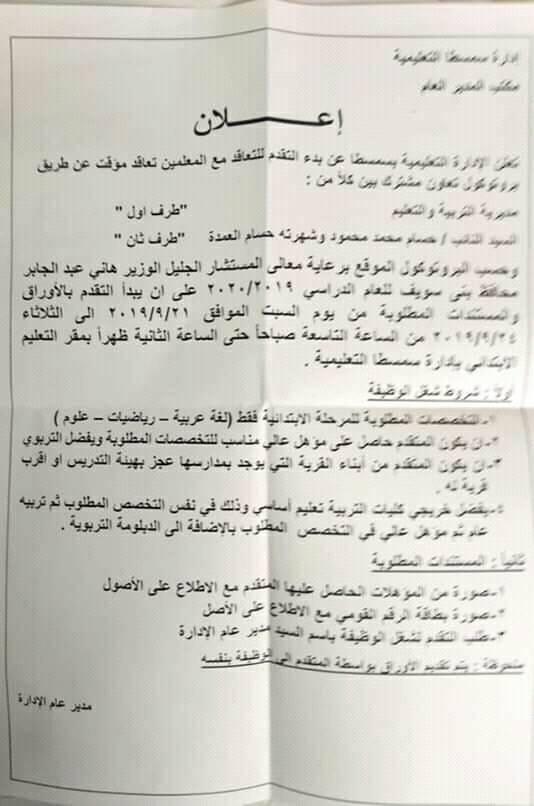 إدارة سمسطا التعليمية
مكتب المدير العام
إعـــــــــلان
تعلن الإدارة التعليمية بسمسطا عن بدء التقدم للتعاقد مع المعلمين تعاقد مؤقت عن طريق
بروتوكول تعاون مشترك بين كلاً من :
مديرية التربية والتعليم "طرف اول "
السيد النائب / حسام محمد محمود وشهرته حسام العمدة "طرف ثان "
وحسب البروتوكول الموقع برعاية معالى المستشار الجليل الوزير هاني عبد الجابر
محافظ بنى سويف للعام الدراسي ٢٠٢٠/٢٠١٩ على ان يبدأ التقدم بالأوراق
والمستندات المطلوبة من يوم السبت الموافق ٢٠١٩/٩/٢١ الى الثلاثاء
٢٠١٩/٩/٢٤ من الساعة التاسعة صباحاً حتى الساعة الثانية ظهراً بمقر التعليم
الابتدائى بإدارة سمسطا التعليمية .
اولاً : شروط شغل الوظيفة
١-التخصصات المطلوبة للمرحلة الابتدائية فقط (لغة عربية – رياضيات – علوم )
٢-ان يكون المتقدم حاصل على مؤهل عالي مناسب للتخصصات المطلوبة ويفضل التربوي
٣-ان يكون المتقدم من أبناء القرية التي يوجد بمدارسها عجز بهيئة التدريس او اقرب
قرية له .
٤-يفضل خريجي كليات التربية تعليم أساسي وذلك في نفس التخصص المطلوب ثم تربيه
عام ثم مؤهل عالي في التخصص المطلوب بالإضافة الى الدبلومة التربوية .
ثانياً : المستندات المطلوبة
١-صورة من المؤهلات الحاصل عليها المتقدم مع الاطلاع على الأصول
٢-صورة بطاقة الرقم القومي مع الاطلاع على الأصل
٣-طلب التقدم لشغل الوظيفة باسم السيد مدير عام الإدارة
ملحوظة : يتم تقديم الأوراق بواسطة المتقدم الى الوظيفة بنفسه
مدير عام الإدارة